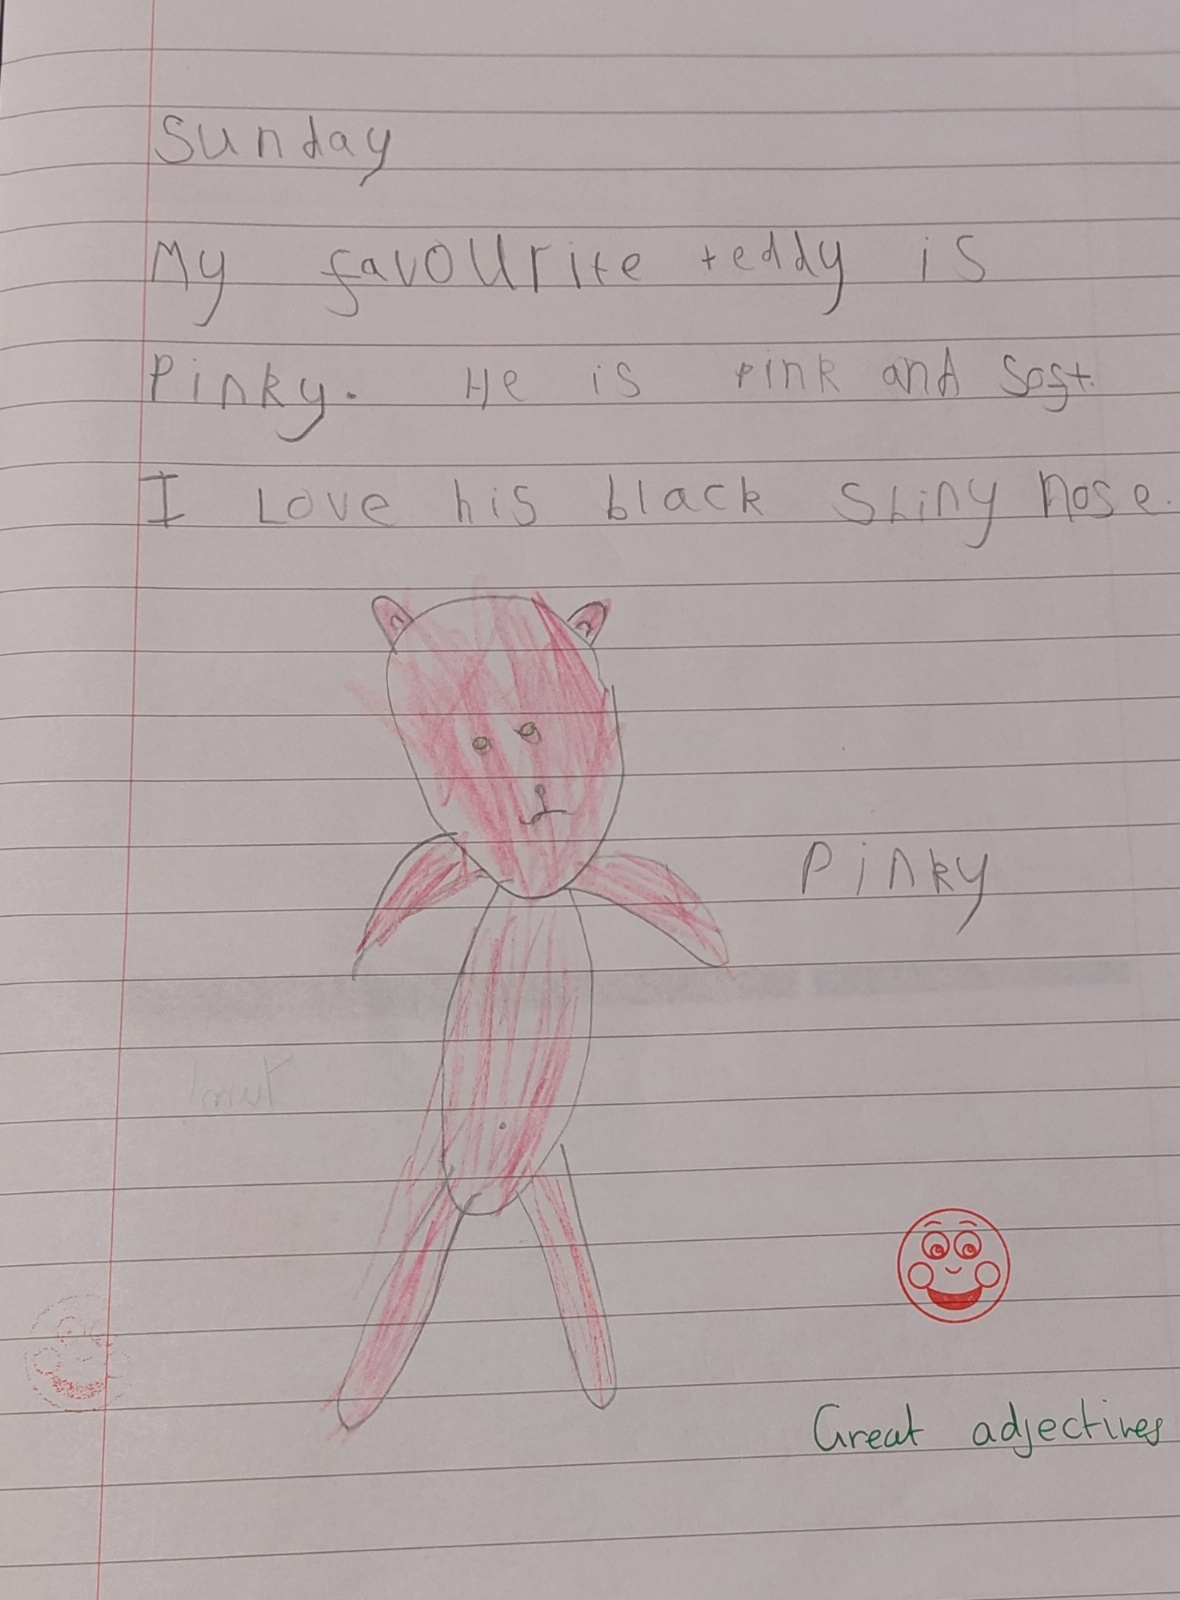 Sunday
My favourite teddy is
Pinky. He is pink and soft.
I Love his black shiny nose.
Pinky
Great adjectives